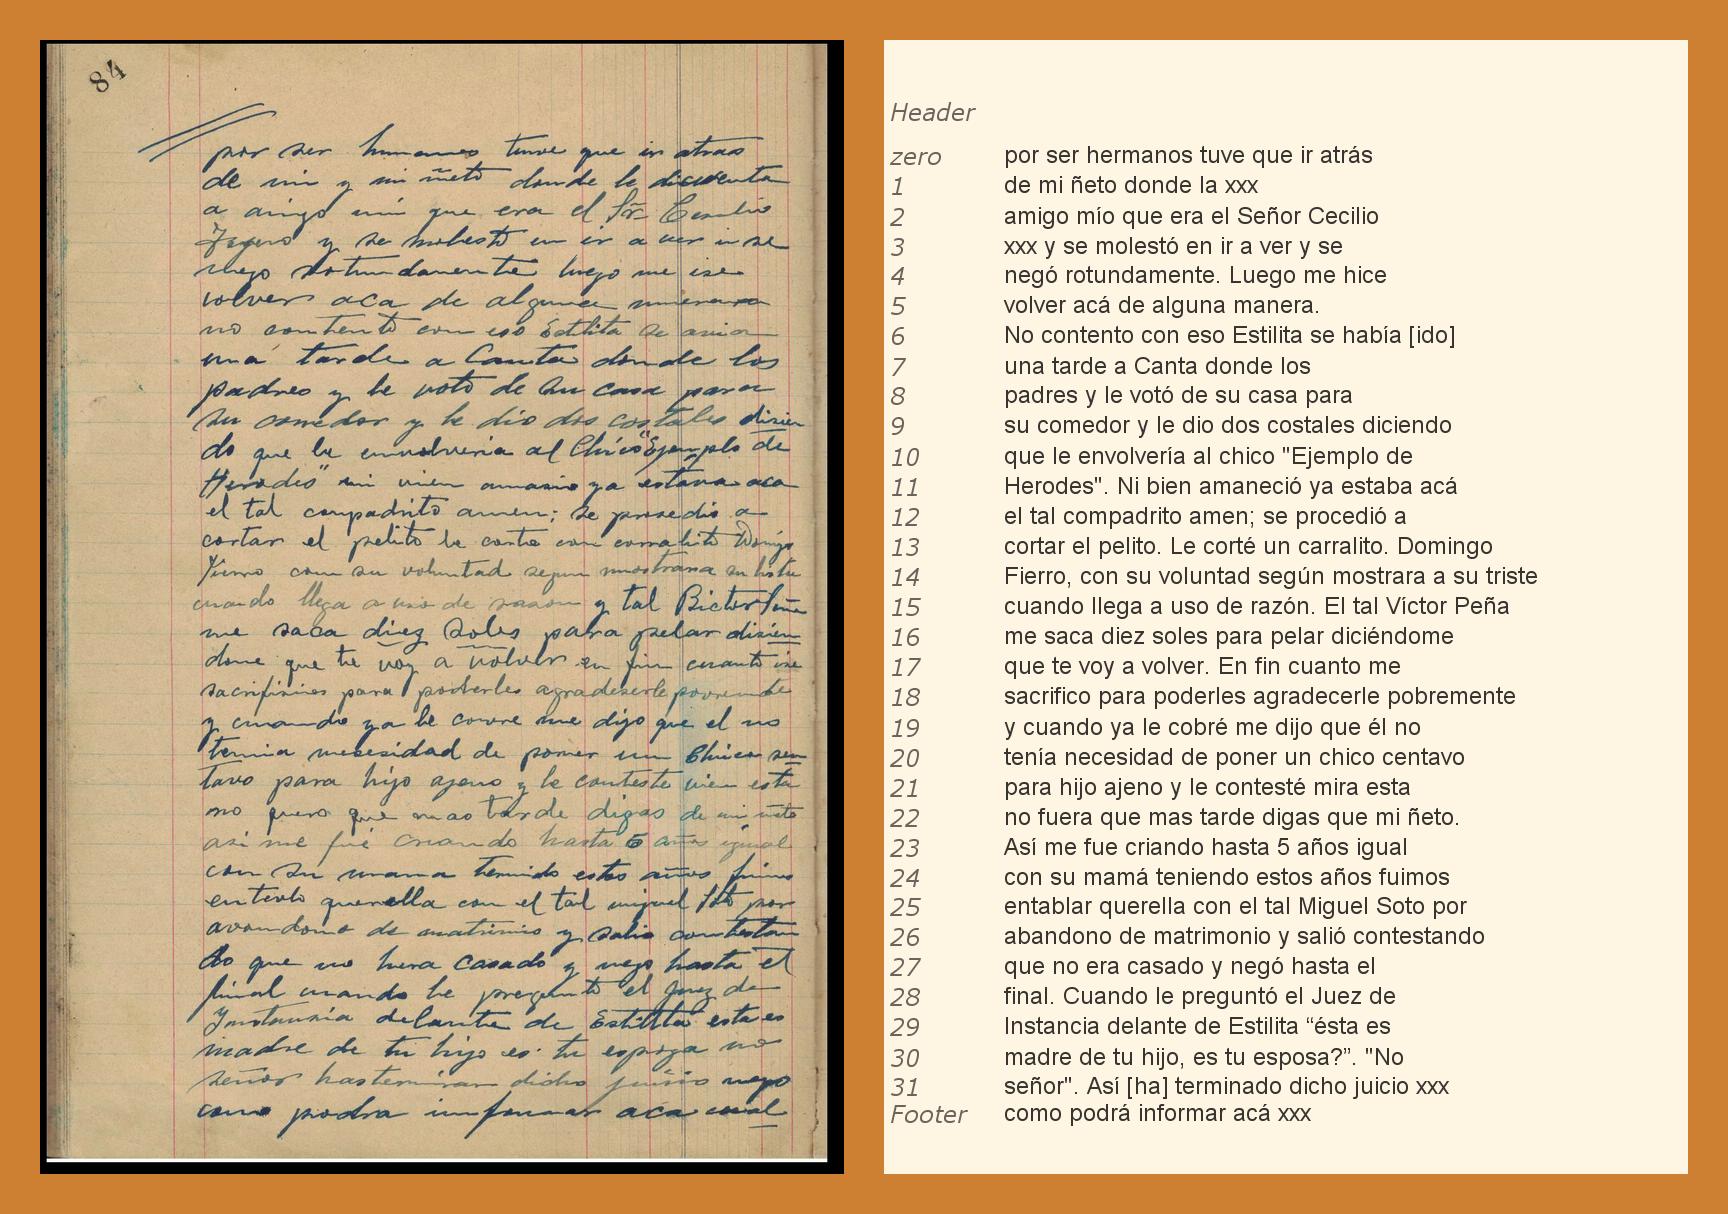 84
por ser hermanos tuve que ir atras
de mi y mi ñeto donde le dicuenta
a amigo mio que era el Sr. Cecilio
y se molesto en ir a ver i se
nego rotundamente luego me ise
volver aca de alguna manera
no contento con eso Estilita se avia
una tarde a Canta donde los
padres y le voto de su casa para
su comedor y le dio dos costales disien
do que le envolveria al Chico "Ejemplo de
Herodes" ni vien amanecio ya estava aca
el tal compadrito amen; se prosedio a
cortar el pelito le corte con corralito Domingo
Fierro con su voluntad segun mostrara su
cuando llega a uso de rason y tal Bictor Peña
me saca diez Soles para pelar disien
dome que te voy a volver en fin cuanto ise
sacrifisios para poderles agradeserle povremente
y cuando ya le covre me dijo que el no
tenia nesesidad de poner un Chico sen
tavo para hijo ajeno y le conteste vien esta
no quero que mas tarde digas de mi ñeto
asi me fué criando hasta 5 años igual
con su mama teniendo estos años fuimos
entavlo querella con el tal miguel Soto por
avandono de matrimio y salio contestan
do que no hera casado y nego hasta el
final cuando le pregunto el Juez de
Instansia delante de Estilita esta es
madre de tu hijo es tu espoza no
señor has terminar dicho juisio nego
como podra informar aca cual
Header
zero por ser hermanos tuve que ir atrás
1 de mi ñeto donde la xxx
2 amigo mío que era el Señor Cecilio
3 xxx y se molestó en ir a ver y se
4 negó rotundamente. Luego me hice
5 volver acá de alguna manera.
6 No contento con eso Estilita se había [ido]
7 una tarde a Canta donde los
8 padres y le votó de su casa para
9 su comedor y le dio dos costales diciendo
10 que le envolvería al chico "Ejemplo de
11 Herodes". Ni bien amaneció ya estaba acá
12 el tal compadrito amen; se procedió a
13 cortar el pelito. Le corté un carralito. Domingo
14 Fierro, con su voluntad según mostrara a su triste
15 cuando llega a uso de razón. El tal Víctor Peña
16 me saca diez soles para pelar diciéndome
17 que te voy a volver. En fin cuanto me
18 sacrifico para poderles agradecerle pobremente
19 y cuando ya le cobré me dijo que él no
20 tenía necesidad de poner un chico centavo
21 para hijo ajeno y le contesté mira esta
22 no fuera que mas tarde digas que mi ñeto.
23 Así me fue criando hasta 5 años igual
24 con su mamá teniendo estos años fuimos
25 entablar querella con el tal Miguel Soto por
26 abandono de matrimonio y salió contestando
27 que no era casado y negó hasta el
28 final. Cuando le preguntó el Juez de
29 Instancia delante de Estilita “ésta es
30 madre de tu hijo, es tu esposa?”. "No
31 señor". Así [ha] terminado dicho juicio xxx
Footer como podrá informar acá xxx